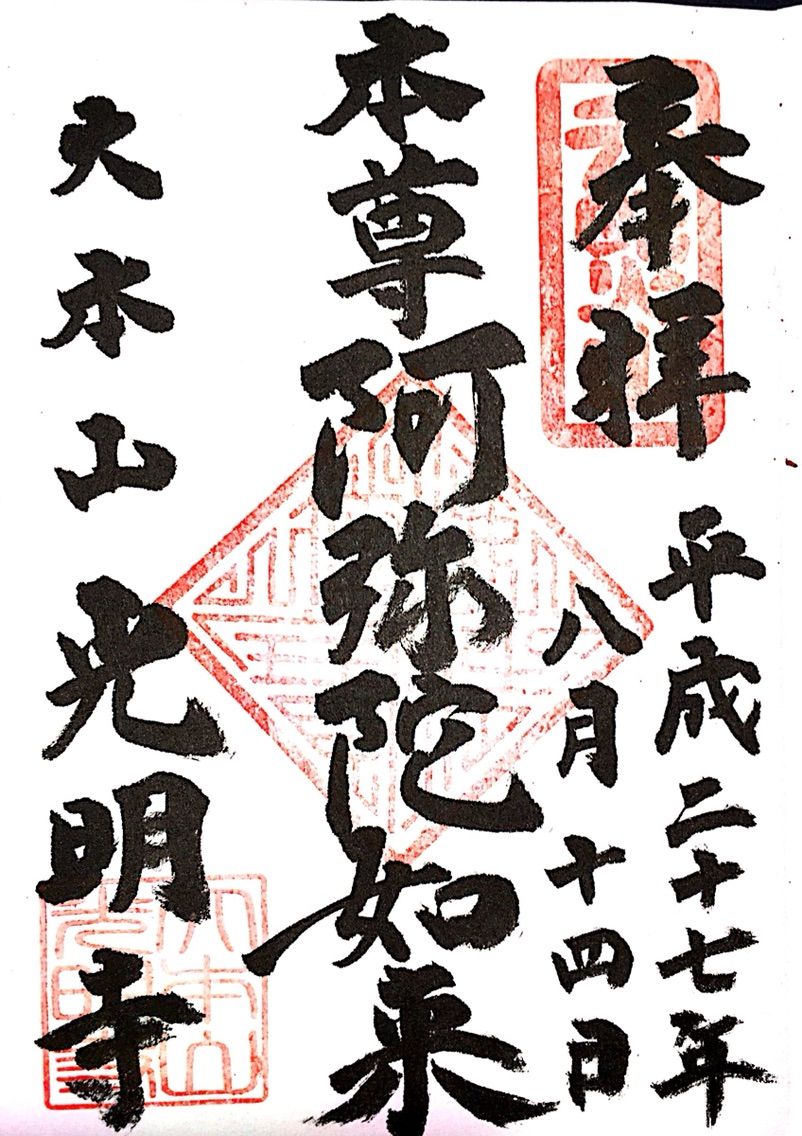 奉拝
平成二十七年
八月十四日
本尊阿弥陀如来
大本山光明寺
大本山
光明寺